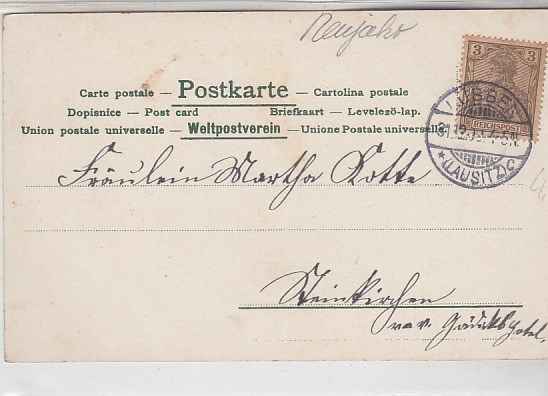 Neujahr
3
REICHSPOST
Carte postale — Postkarte — Cartolina postale
Dopisnice — Post card Briefkaart — Levelező-lap.
Union postale universelle — Weltpostverein — Unione Postale universelle
LÜBBEN
31.12.
* (LAUSITZ) C
Fräulein Martha Kotte
Steinkirchen